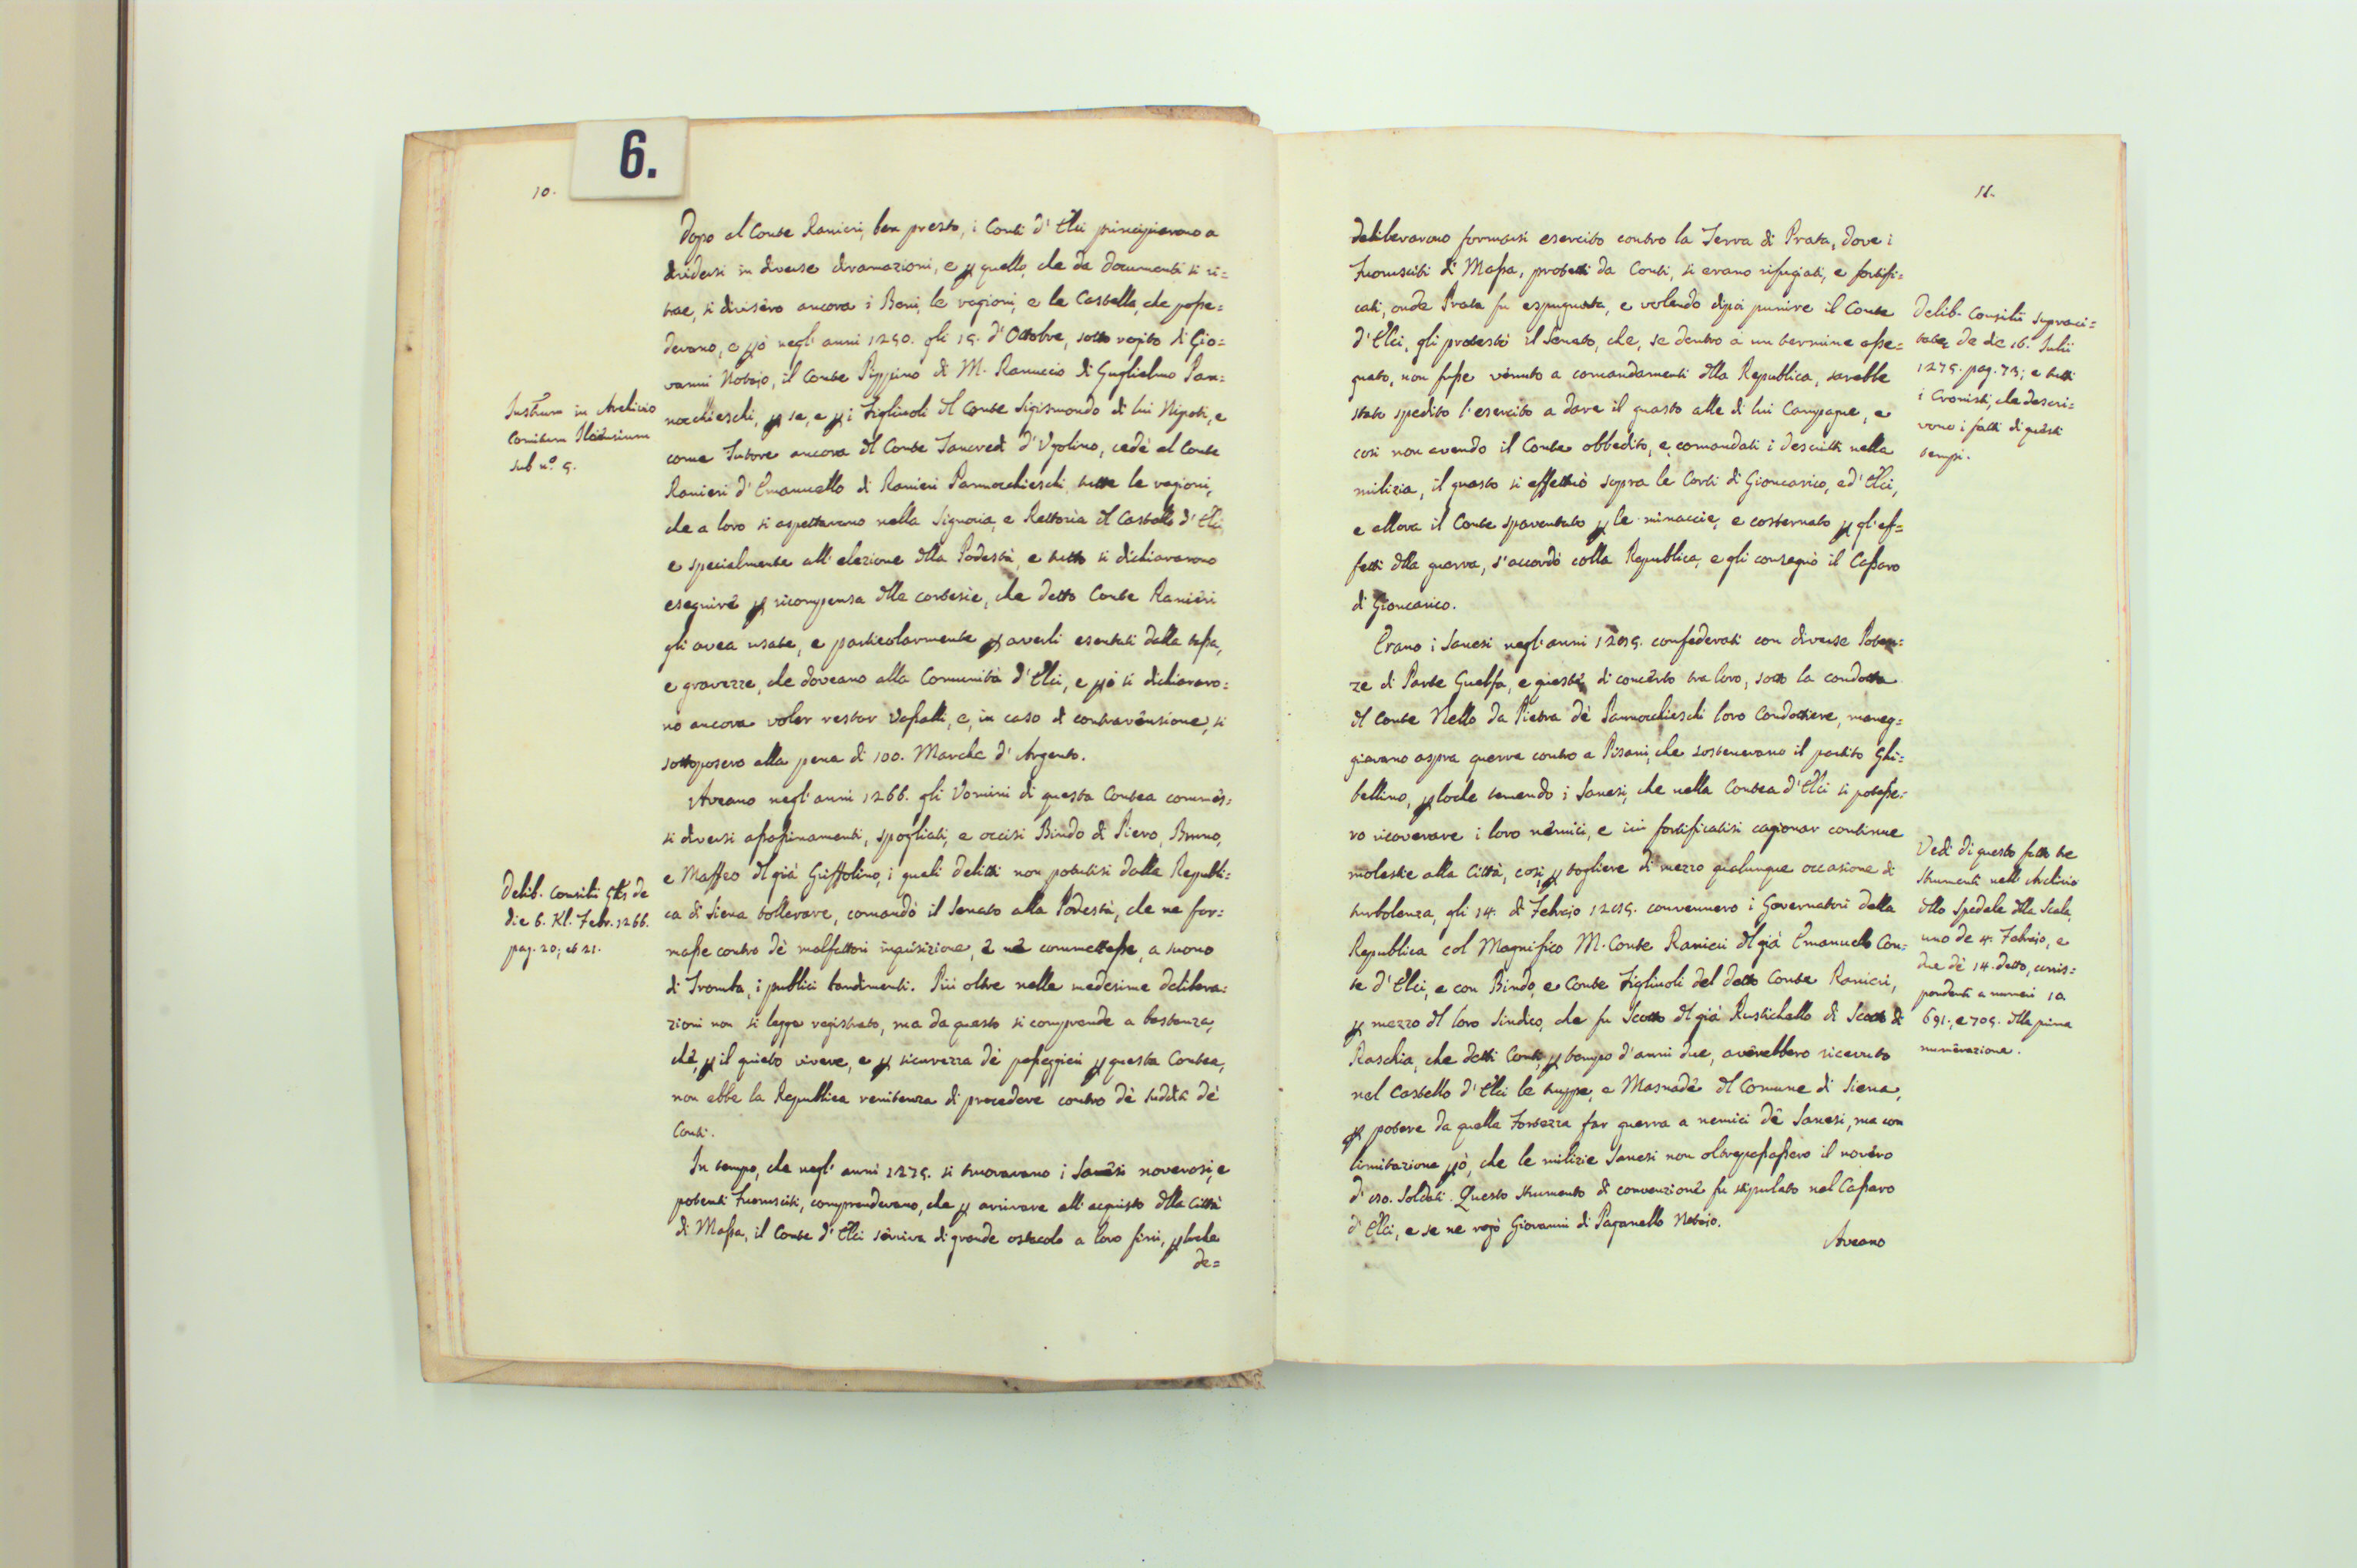 6.
10.
Dopo el Conte Ranieri, ben presto, i Conti d'Elci principiarono a
dividersi in diverse diramazioni, e p quello, che da documenti si ri=
trae, si divisero ancora i Beni, le ragioni, e le Castella, che posse=
devano, e pò negl'anni 1250. gli 15. d'Ottobre, sotto rogito di Gio=
vanni Notajo, il Conte Pippino di M. Ranuccio di Guglielmo Pan=
nocchieschi, p se, e p i Figliuoli dl Conte Sigismondo di lui Nipoti, e
come Tutore ancora dl Conte Tancredi d'Vgolino, cedè al Conte
Ranieri d'Emanuello di Ranieri Pannocchieschi tutte le ragioni,
che a loro si aspettavano nella Signoria, e Rettoria dl Castello d'Elci
e specialmente all'elezione dlla Podestà, e tutto si dichiararono
eseguire p ricompensa dlle cortesie, che detto Conte Ranieri
gli avea usate, e particolarmente p averli esentati dalle tasse,
e gravezze, che doveano alla Comunità d'Elci, e pò si dichiararo=
no ancora voler restar Vassalli, e, in caso di contravensione, si
sottoposero alla pena di 100. Marche d'Argento.
Aveano negl'anni 1266. gli Vomini di questa Contea commes=
si diversi assassinamenti, spogliati, e occisi Bindo di Piero, Bruno,
e Maffeo dl già Griffolino, i quali delitti non potutisi dalla Republi=
ca di Siena tollerare, comandò il Senato alla Podestà, che ne for=
masse contro dè malfattori inquisizione, e ne commettesse, a suono
di Tromba, i publici bandimenti. Più oltre nelle medesime delibera=
zioni non si legge registrato, ma da questo si comprende a bastanza,
chè, p il quieto vivere, e p sicurezza dè passeggieri p questa Contea,
non ebbe la Republica renitenza di procedere contro dè sudditi dè
Conti.
In tempo, che negl'anni 1275. si truovavano i Sanesi noverosi, e
potenti Fuorusciti, comprendevano, che p arrivare all'acquisto dlla Città
di Massa, il Conte d'Elci serviva di grande ostacolo a loro fini, p loche
de=
Instrum in Archivio
Comitum Ilcinsium
sub n.o 5.
Delib. Consilii Glis de
die 6. Kl. Febr. 1266.
pag. 20, et 21.
11.
deliberarono formarsi esercito contro la Terra di Prata, dove i
Fuorusciti di Massa, protetti da Conti, si erano rifugiati, e fortifi=
cati, onde Prata fu espugnata, e volendo dipoi punire il Conte
d'Elci, gli protestò il Senato, che, se dentro a un termine asse=
gnato, non fusse venuto a comandamenti dlla Republica, sarebbe
stato spedito l'esercito a dare il guasto alle di lui Campagne, e
così non avendo il Conte obbedito, e comandati i descritti nella
milizia, il guasto si effettuò sopra le Corti di Gioncarico, ed'Elci,
e allora il Conte spaventato p le minaccie, e costernato p gl'ef=
fetti dlla guerra, s'accordò colla Republica, e gli consegnò il Cassaro
di Gioncarico.
Erano i Sanesi negl'anni confederati con diverse Poten=
ze di Parte Guelfa, e queste, di concerto tra loro, sotto la condotta
dl Conte Nello da Pietra dè Pannocchieschi loro Condottiere, maneg=
giavano aspra guerra contro a Pisani, che sostenevano il partito Ghi=
bellino, p loche temendo i Sanesi, che nella Contea d'Elci si potesse=
ro ricoverare i loro nemici, e ivi fortificatisi cagionar continue
molestie alla Città, così, p togliere di mezzo qualunque occasione di
turbolenza, gli 14. di Febrajo convennero i Governatori della
Republica col Magnifico M. Conte Ranieri dl già Emanuello Con=
te d'Elci, e con Bindo, e Conte Figliuoli del detto Conte Ranieri,
p mezzo dl loro Sindico, che fu Scotto dl già Rustichello di Scotto di
Raschia, che detti Conti, p tempo d'anni due, averebbero ricevuto
nel Castello d'Elci le truppe, e Masnade dl Comune di Siena,
p potere da quella Fortezza far guerra a nemici dè Sanesi, ma con
limitazione pò, che le milizie Sanesi non oltrepassassero il novero
di 150. Soldati. Questo strumento di convenzione fu stipulato nel Cassaro
d'Elci, e se ne rogò Giovanni di Paganello Notajo.
Aveano
Delib. Consilii supraci=
tatæ de die 16. Julii
1275. pag. 73; e tutti
i Cronisti, che descri=
vono i fatti di questi
tempi.
Vedi di questo fatto tre
strumenti nell'Archivio
dllo Spedale dlla Scala,
uno de 4. Febrajo, e
due dè 14. detto, corris=
pondenti a numeri
691., e 705. dlla prima
numerazione.